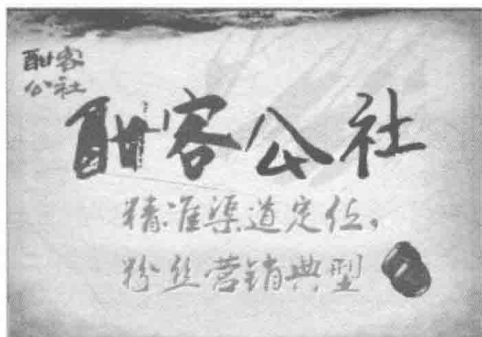 酣客
公社
酣客公社
精准渠道定位,
粉丝营销典型